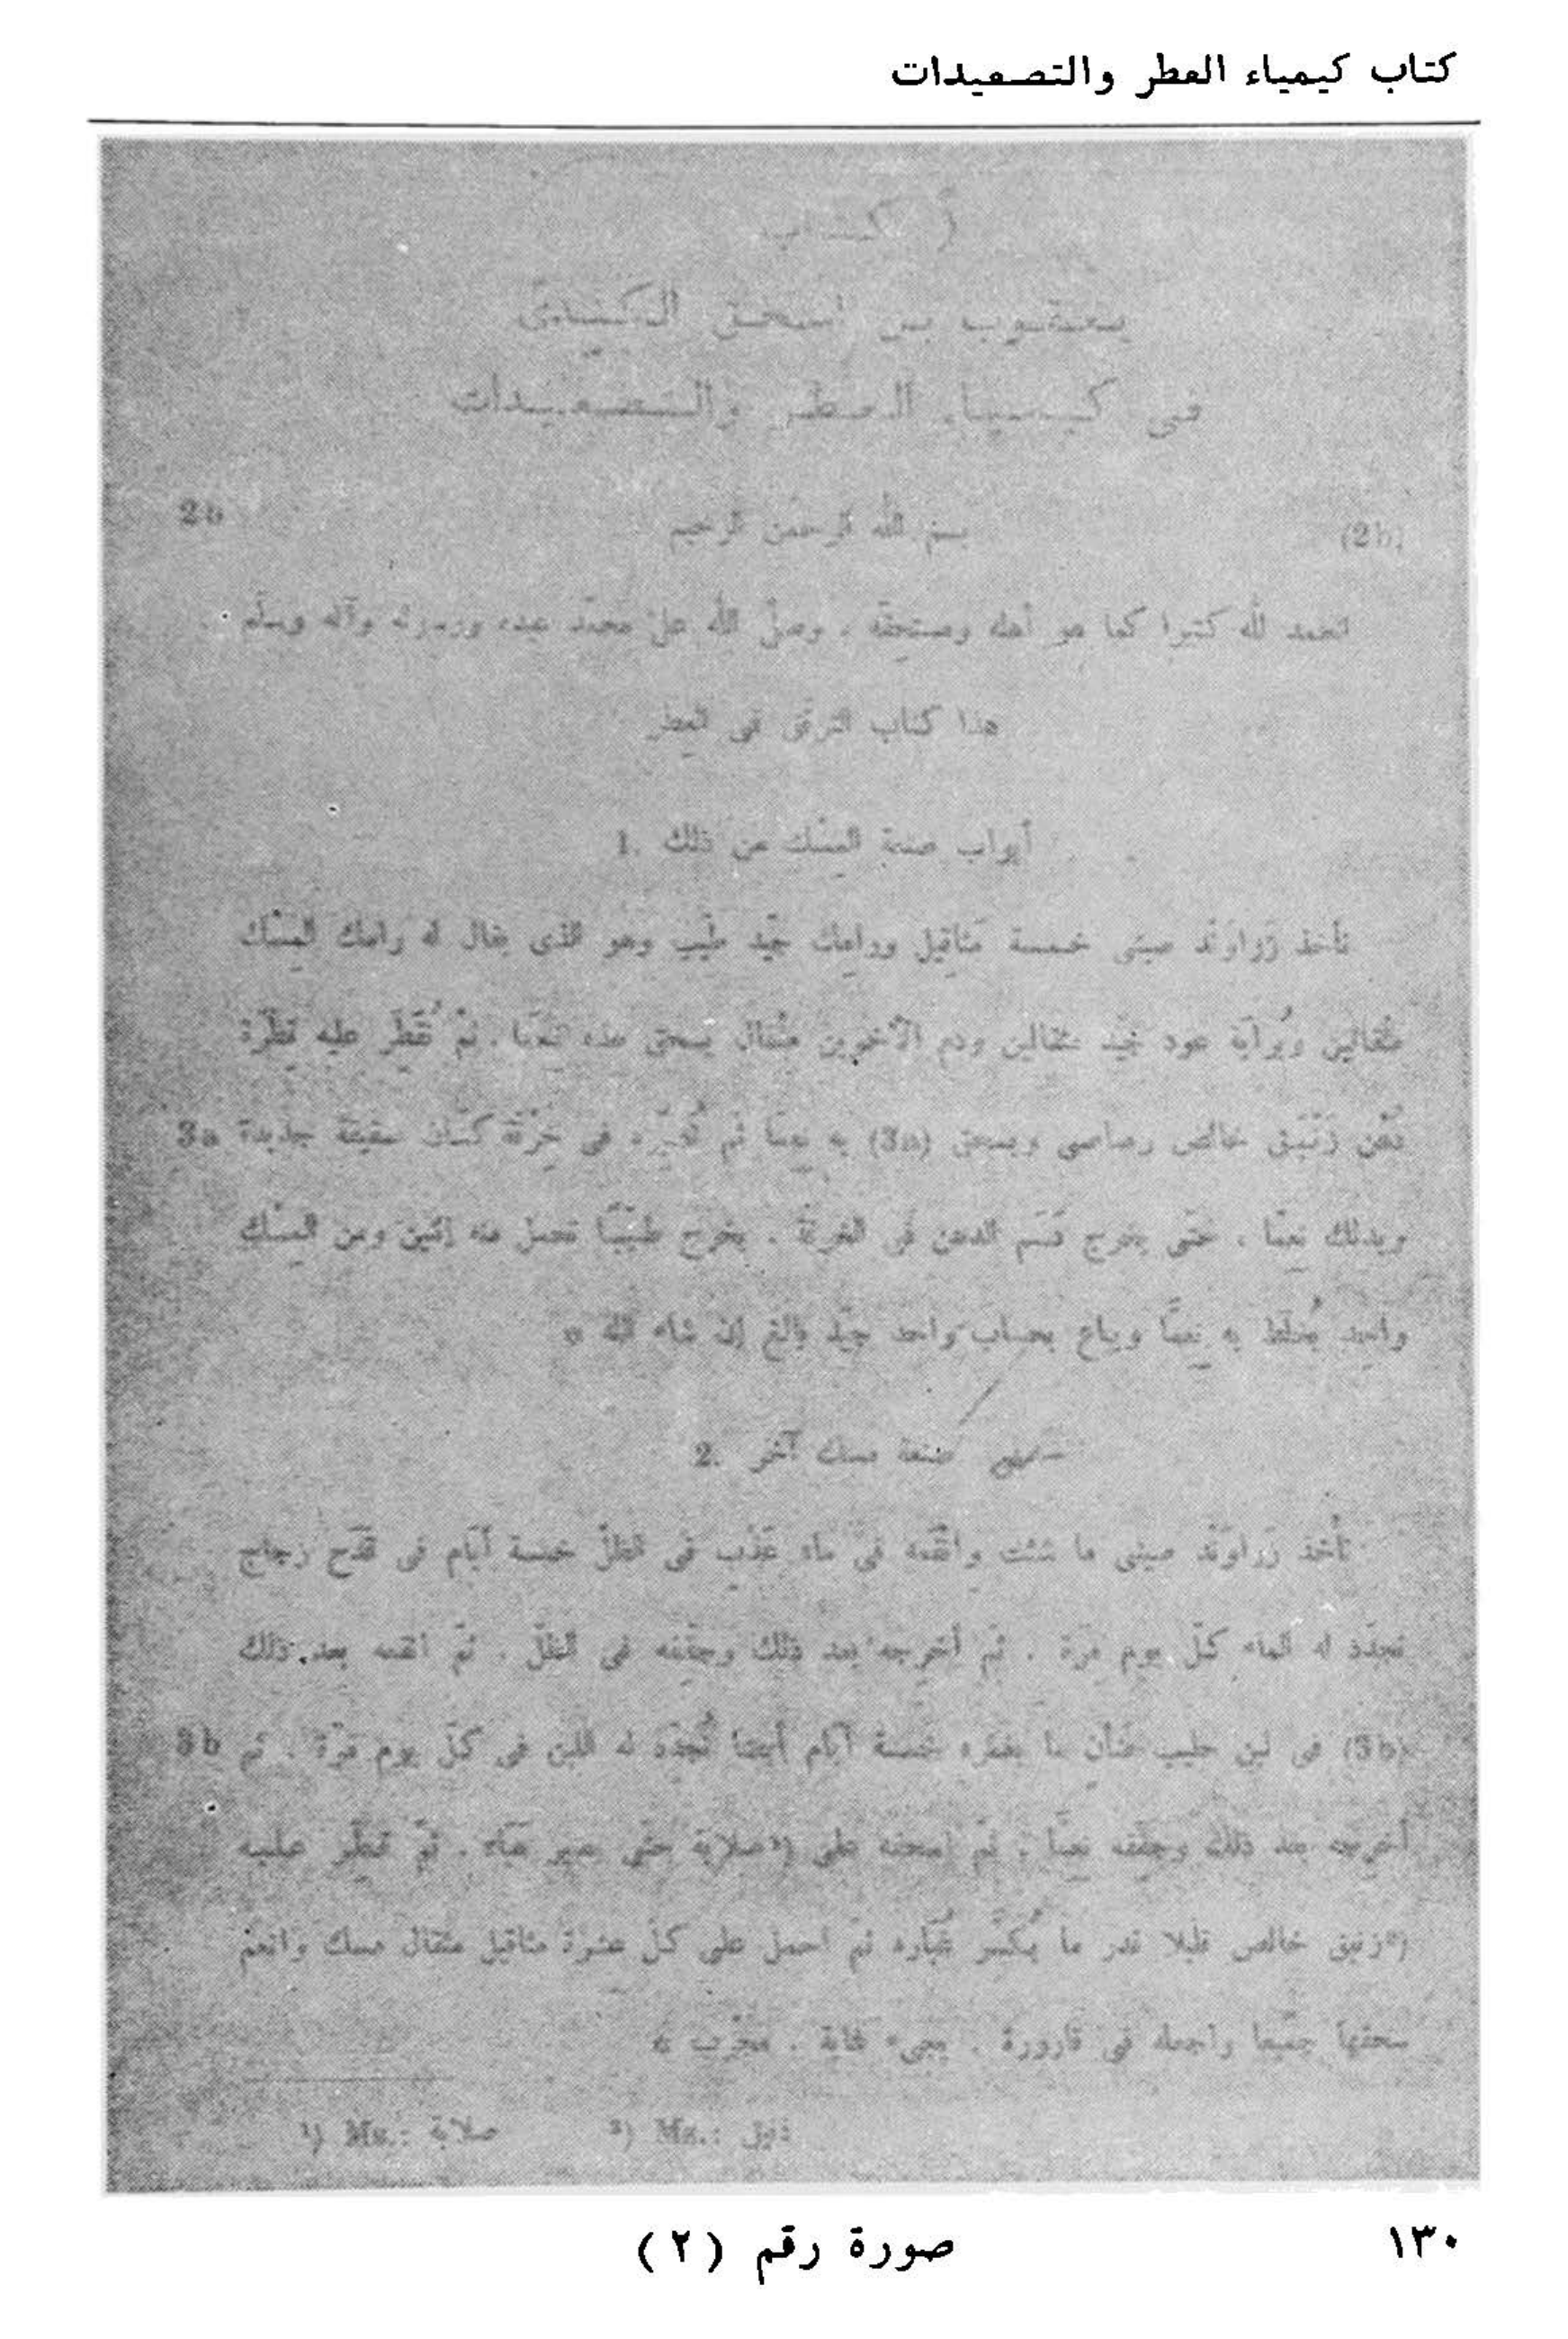 كتاب كيمياء العطر والتصعيدات
كتاب
يعقوب بن اسحق الكندى
فى كيمياء العطر والتصعيدات
(2b) بسم الله الرحمن الرحيم 2b
الحمد لله كثيرا كما هو أهله ومستحقّه . وصلّى الله على محمّد عبده ورسوله وآله وسلّم .
هذا كتاب الترفّق فى العطر
1. أبواب صنعة المسْك من ذلك
تأخذ زَراوَنْد صينى خمسة مَثاقيل ورامك جيّد طيّب وهو الذى يقال له رامك المِسْك
مثقالين وبُراَية عود جيّد مثقالين ودم الأَخَوين مثقال يسحق هذه نَعِمَّا . ثمّ تُقَطِّر عليه قطرة
دُهْن زَنْبَق خالص رصاصى ويسحق (3a) به نعِمَّا ثم تُصَيِّره فى خِرْقة كتّان صفيقة جديدة 3a
ويدلك نعِمَّا . حتّى يخرج دَسَم الدهن فى الخرقة . يخرج طيّبًا تحمل منه إثنين ومن المِسْك
واحد يُخلَط به نعِمَّا ويباع بحساب واحد جيّد بالغ إن شاء الله
2. صنعة مسك آخر
تأخذ زَراوَنْد صينى ما شئت وانْقَعه فى ماء عَذْب فى الظلّ خمسة أيّام فى قَدَح زجاج
تجدّد له الماء كلّ يوم مرّة . ثم أخرجه بعد ذلك وجفّفه فى الظلّ . ثمّ انقعه بعد ذلك
(3b) فى لبن حليب ضأن ما يغمره خمسة أيّام أيضا تُجدّد له اللبن فى كلّ يوم مرّة . ثم 3b
أخرجه بعد ذلك وجفّفه نعِمَّا . ثمّ إسحقه على ¹)صلاية حتّى يصير هَباء . ثمّ تقطّر عليه
²)زنبق خالص قليلا قدر ما يُكَسِّر غُبَاره ثم احمل على كلّ عشرة مثاقيل مثقال مسك وانعم
سحقها جميعا واجعله فى قارورة . يجىء غاية . مجرّب
¹) Ms.: صلابة ²) Ms.:
صورة رقم ( ٢ )
١٣٠